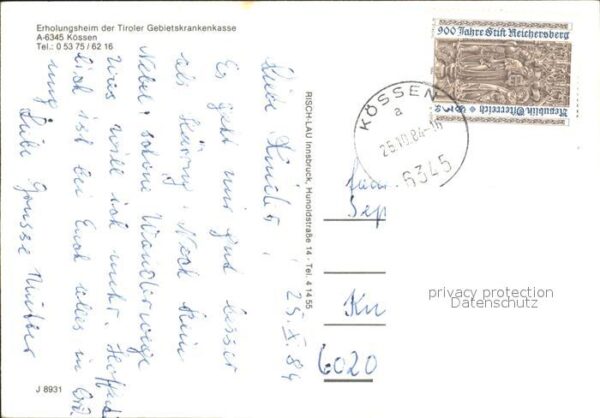 Erholungsheim der Tiroler Gebietskrankenkasse
A-6345 Kössen
Tel.: 0 53 75 / 62 16
900 Jahre Stift Reichersberg
Republik Österreich S 3.50
KÖSSEN
a
25.10.84-14
6345
RISCH-LAU Innsbruck, Hunoldstraße 14 - Tel. 4 14 55
25. X. 84
Liebe Kinder!
Es geht mir gut besser
als Hüring. Noch kein
Nebel, schöne Wanderwege
was will ich mehr. Hoffent
lich ist bei Euch alles in Ord
nung
Liebe Grüsse Mutter
Fam.
Sep
Kn
6020
privacy protection
Datenschutz
J 8931